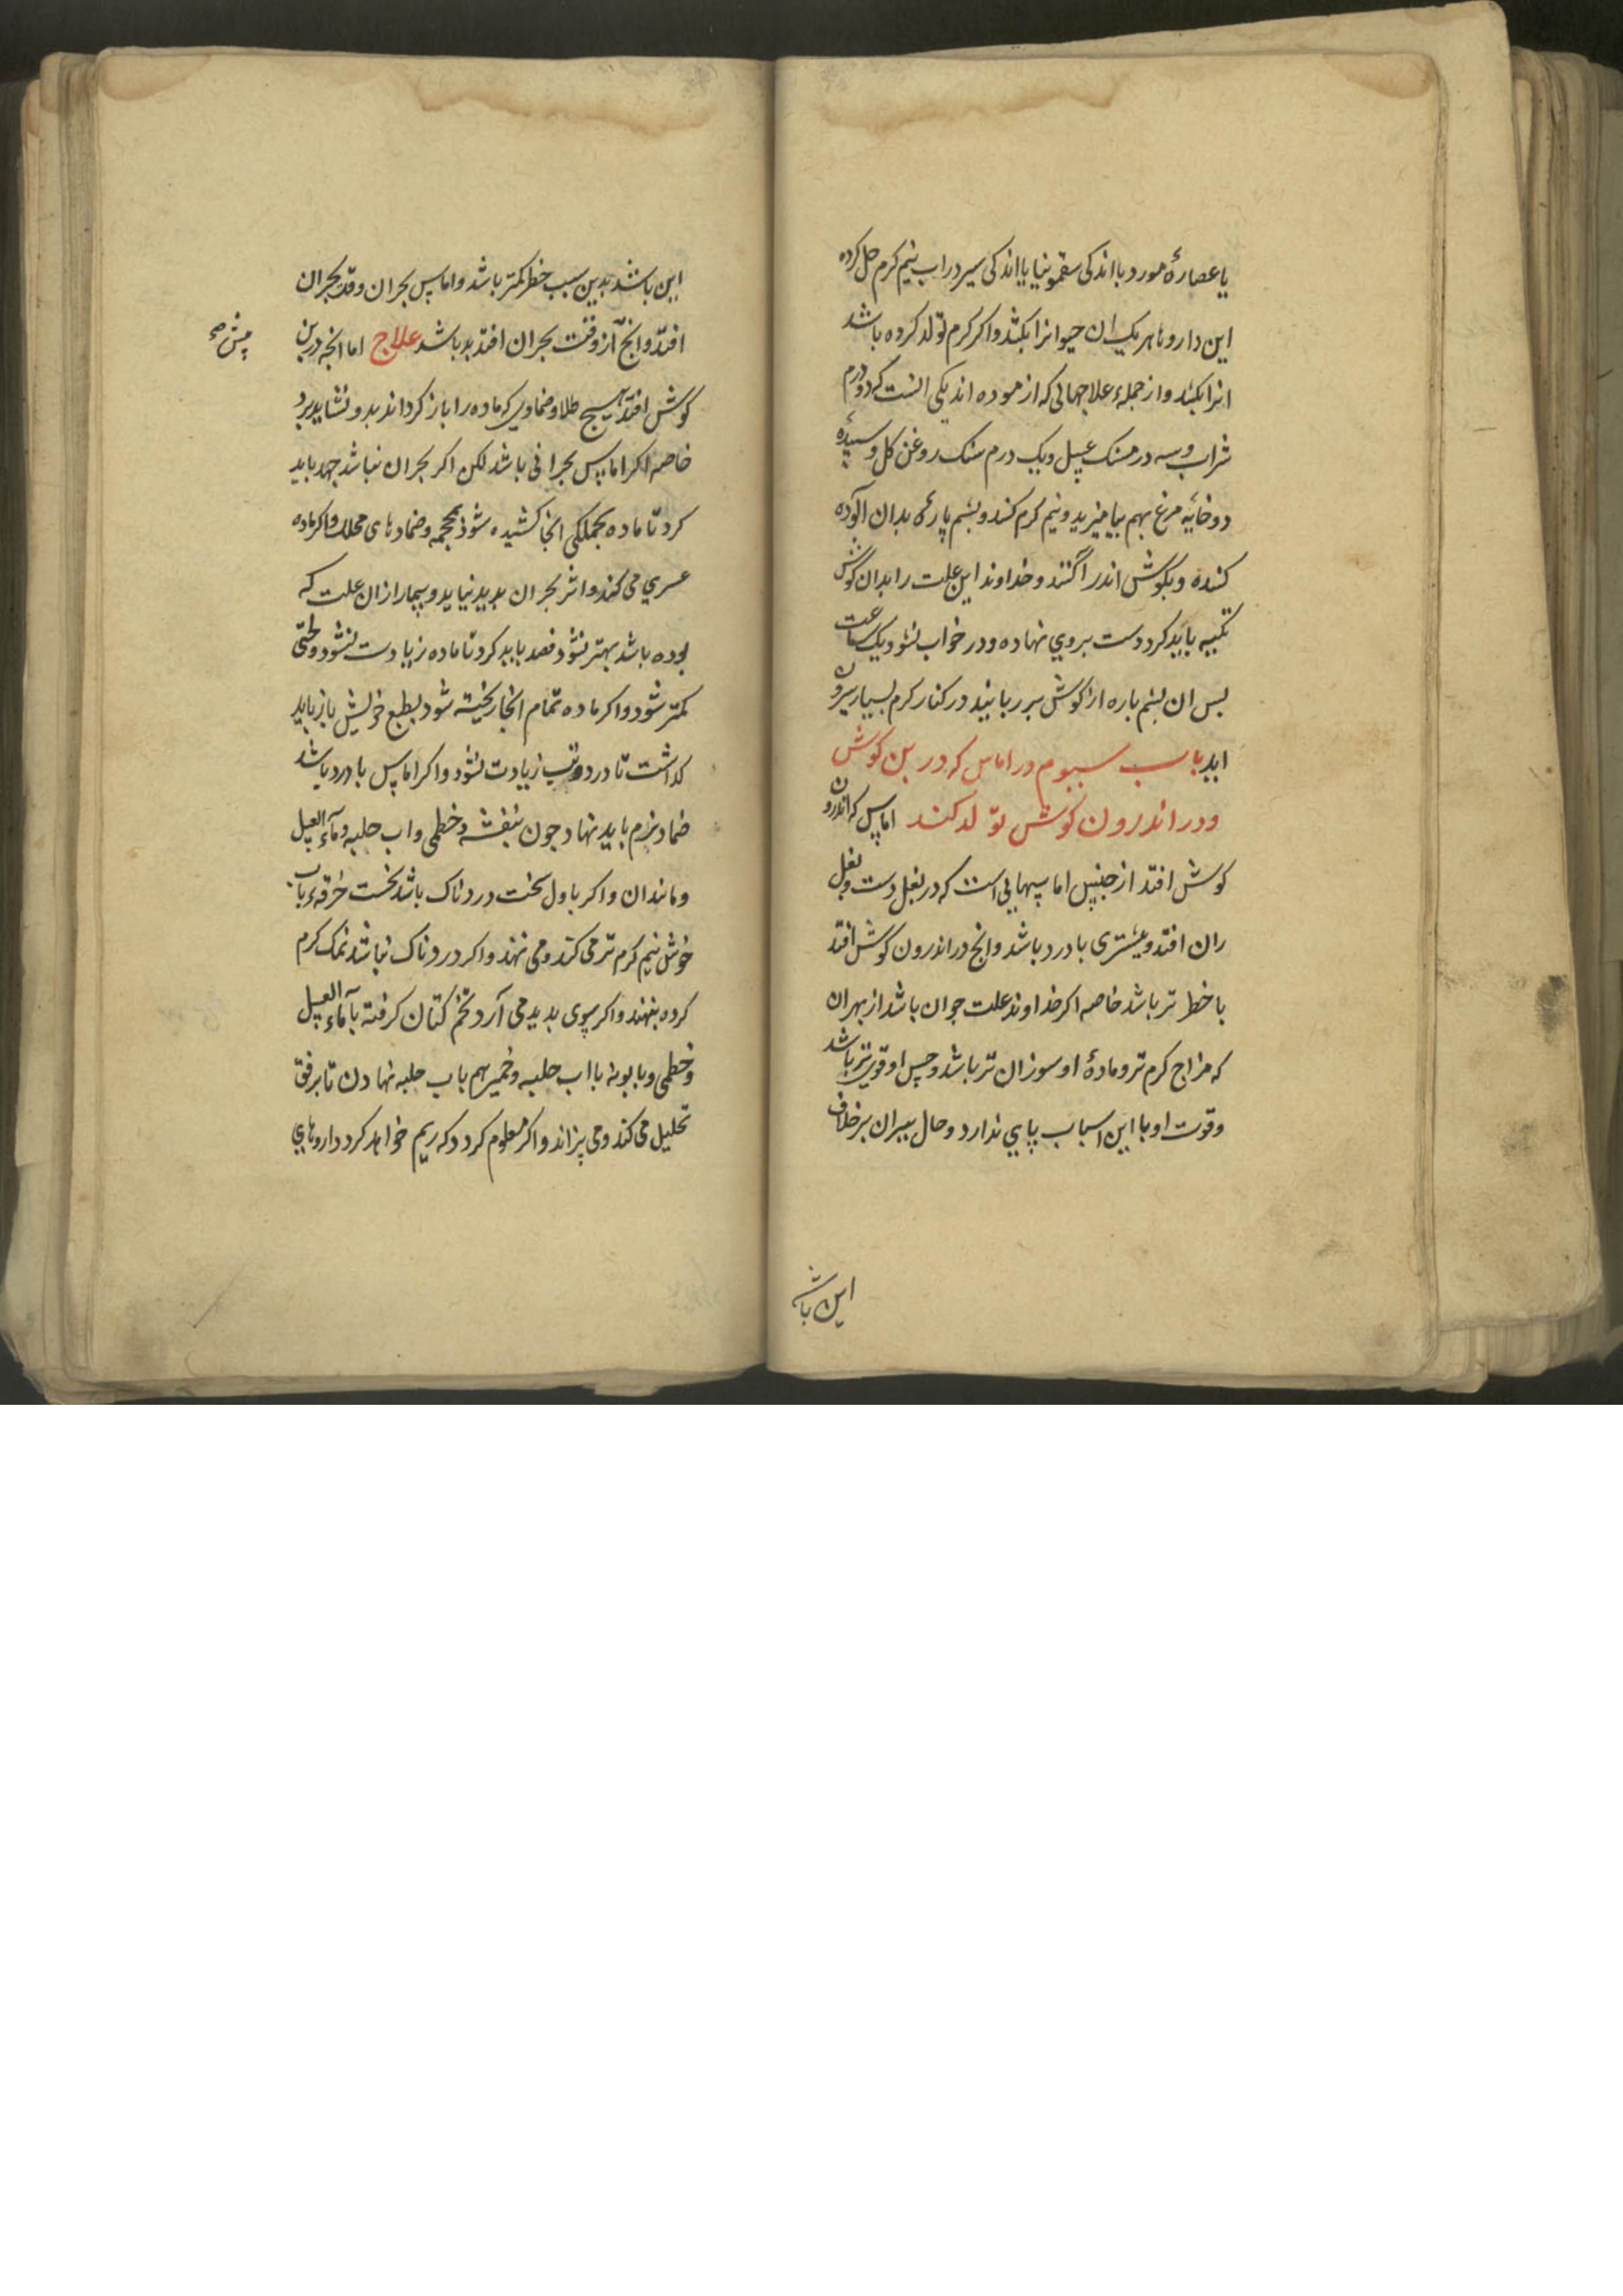 یا عصارۀ مورد با اندکی سقمونیا یا اندکی سیر در اب نیم کرم حل کرده
این داروها هر یک ان حیوانرا بکشد واکر کرم تولد کرده باشد
انرا بکشد واز جملۀ علاجهائی که ازموده اند یکی انست که دو درم
شراب وسه درمسنک عسل ویک درم سنک روغن کل وسپیدۀ
دو خایه مرغ بهم بیامیزند ونیم کرم کنند وپشم پارۀ بدان الوده
کننده وبکوش اندر اکنند وخداوند این علت را بدان کوش
تکیه باید کرد دست بروی نهاده ودر خواب نشود یک ساعت
بس ان پشم باره از کوش بر ربایند در کنار کرم بسیار بیرون
اید باب سیوم در اماس که در بن کوش
ودر اندرون کوش تولد کند اماس که اندرون
کوش افتد از جنس اماسهایی است که در بغل دست وبغل
ران افتد وبیشتری با درد باشد وانج در اندرون کوش افتد
با خطر تر باشد خاصه اکر خداوند علت جوان باشد از بهر ان
که مزاج کرم تر ومادۀ او سوزان تر باشد وحس او قوی تر باشد
وقوت او با این اسباب پایی ندارد وحال پیران بر خلاف
این باشد
این باشد بدین سبب خطر کمتر باشد واماس بحران وقت بحران
افتد وانج از وقت بحران افتد بد باشد علاج اما انجه در بن
پیش صح
کوش افتد هیچ طلا وضمادی که ماده را باز کرداند بدو نشاید برد
خاصه اکر اماس بحرانی باشد لکن اکر بحران نباشد جهد باید
کرد تا ماده بجملکی انجا کشیده شود بمحجمه وضمادهای محلل واکر ماده
عسری می کند واثر بحران بدید نیاید وبیمار ازان علت که
بوده باشد بهتر نشود فصد باید کرد تا ماده زیادت نشود ولختی
کمتر شود واکر ماده تمام انجا ریخته شود بطبع خویش باز باید
کذاشت تا درد وتب زیادت نشود واکر اماس با درد باشد
ضماد نرم باید نهاد جون بنفشه وخطمی واب حلبه وماء العسل
ومانند ان واکر باول سخت دردناک باشد نخست خرقه باب
خوش نیم کرم تر می کند ومی نهند واکر دردناک نباشد نمک کرم
کرده بنهند واکر بسوی بدید می آرد تخم کتان کرفته بآ ماء العسل
وخطمی وبابونه با اب حلبه وخمیر هم باب حلبه نهادن تا برفق
تحلیل می کند ومی پزاند واکر معلوم کردد که ریم خواهد کرد داروهای